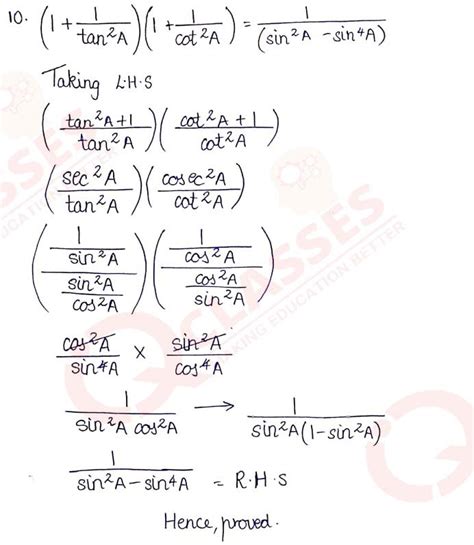 10. (1 + 1/tan²A)(1 + 1/cot²A) = 1/(sin²A - sin⁴A)
Taking L.H.S
((tan²A+1)/tan²A)((cot²A + 1)/cot²A)
(sec²A/tan²A)(cosec²A/cot²A)
((1/sin²A)/(sin²A/cos²A))((1/cos²A)/(cos²A/sin²A))
cos²A/sin⁴A × sin²A/cos⁴A
1/(sin²A cos²A) → 1/(sin²A(1-sin²A))
1/(sin²A-sin⁴A) = R.H.S
Hence, proved.